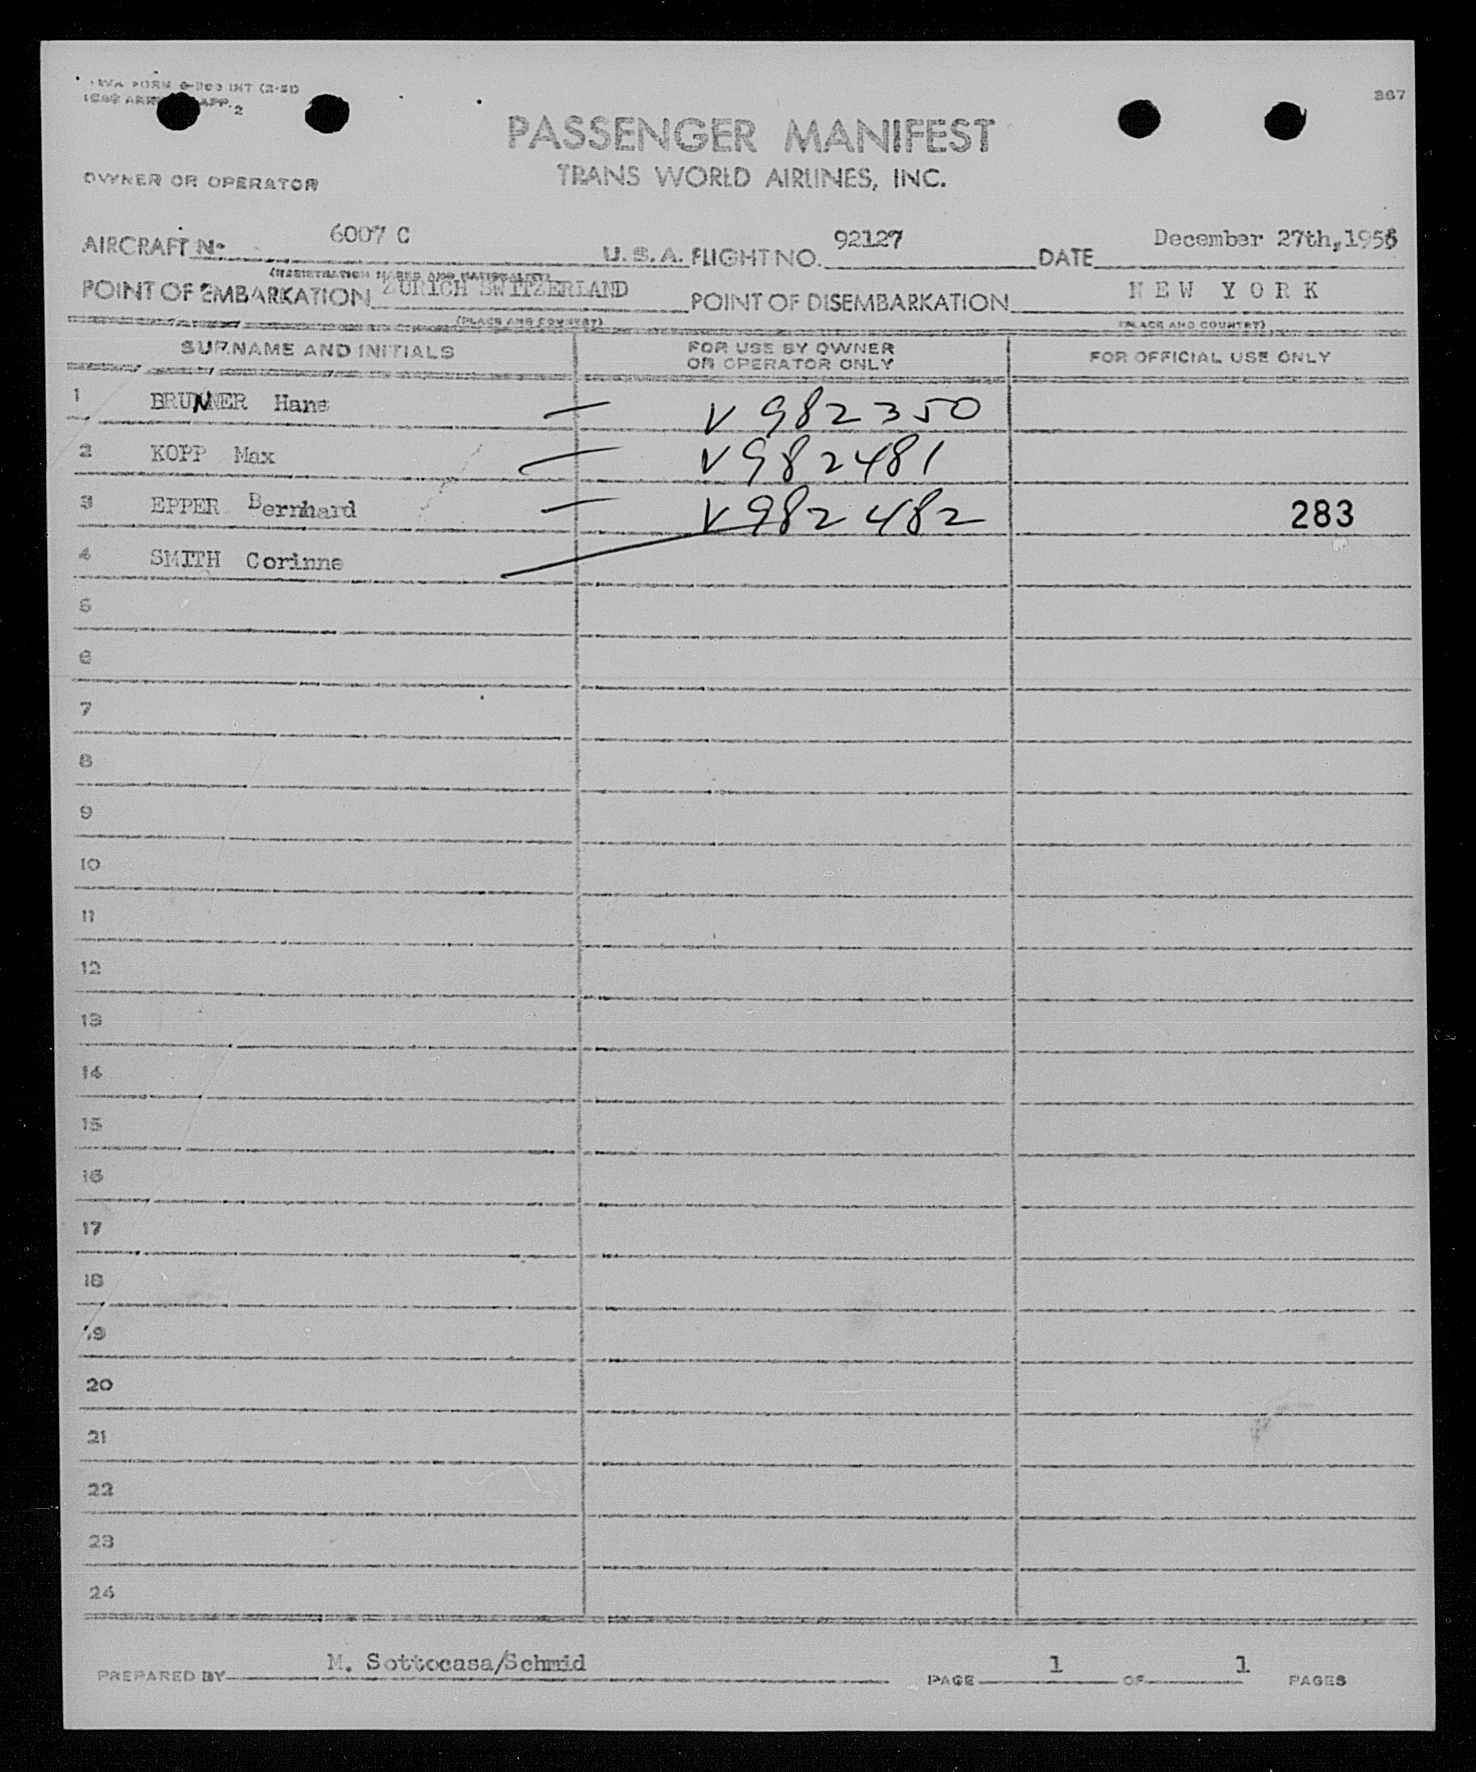 TWA FORM INT (2-51)
ICAO APP. 2
267
PASSENGER MANIFEST
OWNER OR OPERATOR
TRANS WORLD AIRLINES, INC.
AIRCRAFT No 6007 C U.S.A. FLIGHT NO. 92127 DATE December 27th, 1955
(REGISTRATION MARKS AND NATIONALITY)
POINT OF EMBARKATION ZURICH SWITZERLAND POINT OF DISEMBARKATION NEW YORK
(PLACE AND COUNTRY) (PLACE AND COUNTRY)
SURNAME AND INITIALS FOR USE BY OWNER OR OPERATOR ONLY FOR OFFICIAL USE ONLY
1 BRUNNER Hans — V 982350
2 KOPP Max — V982481
3 EPPER Bernhard — V982482 283
4 SMITH Corinne
5
6
7
8
9
10
11
12
13
14
15
16
17
18
19
20
21
22
23
24
PREPARED BY M. Sottocasa/Schmid PAGE 1 OF 1 PAGES